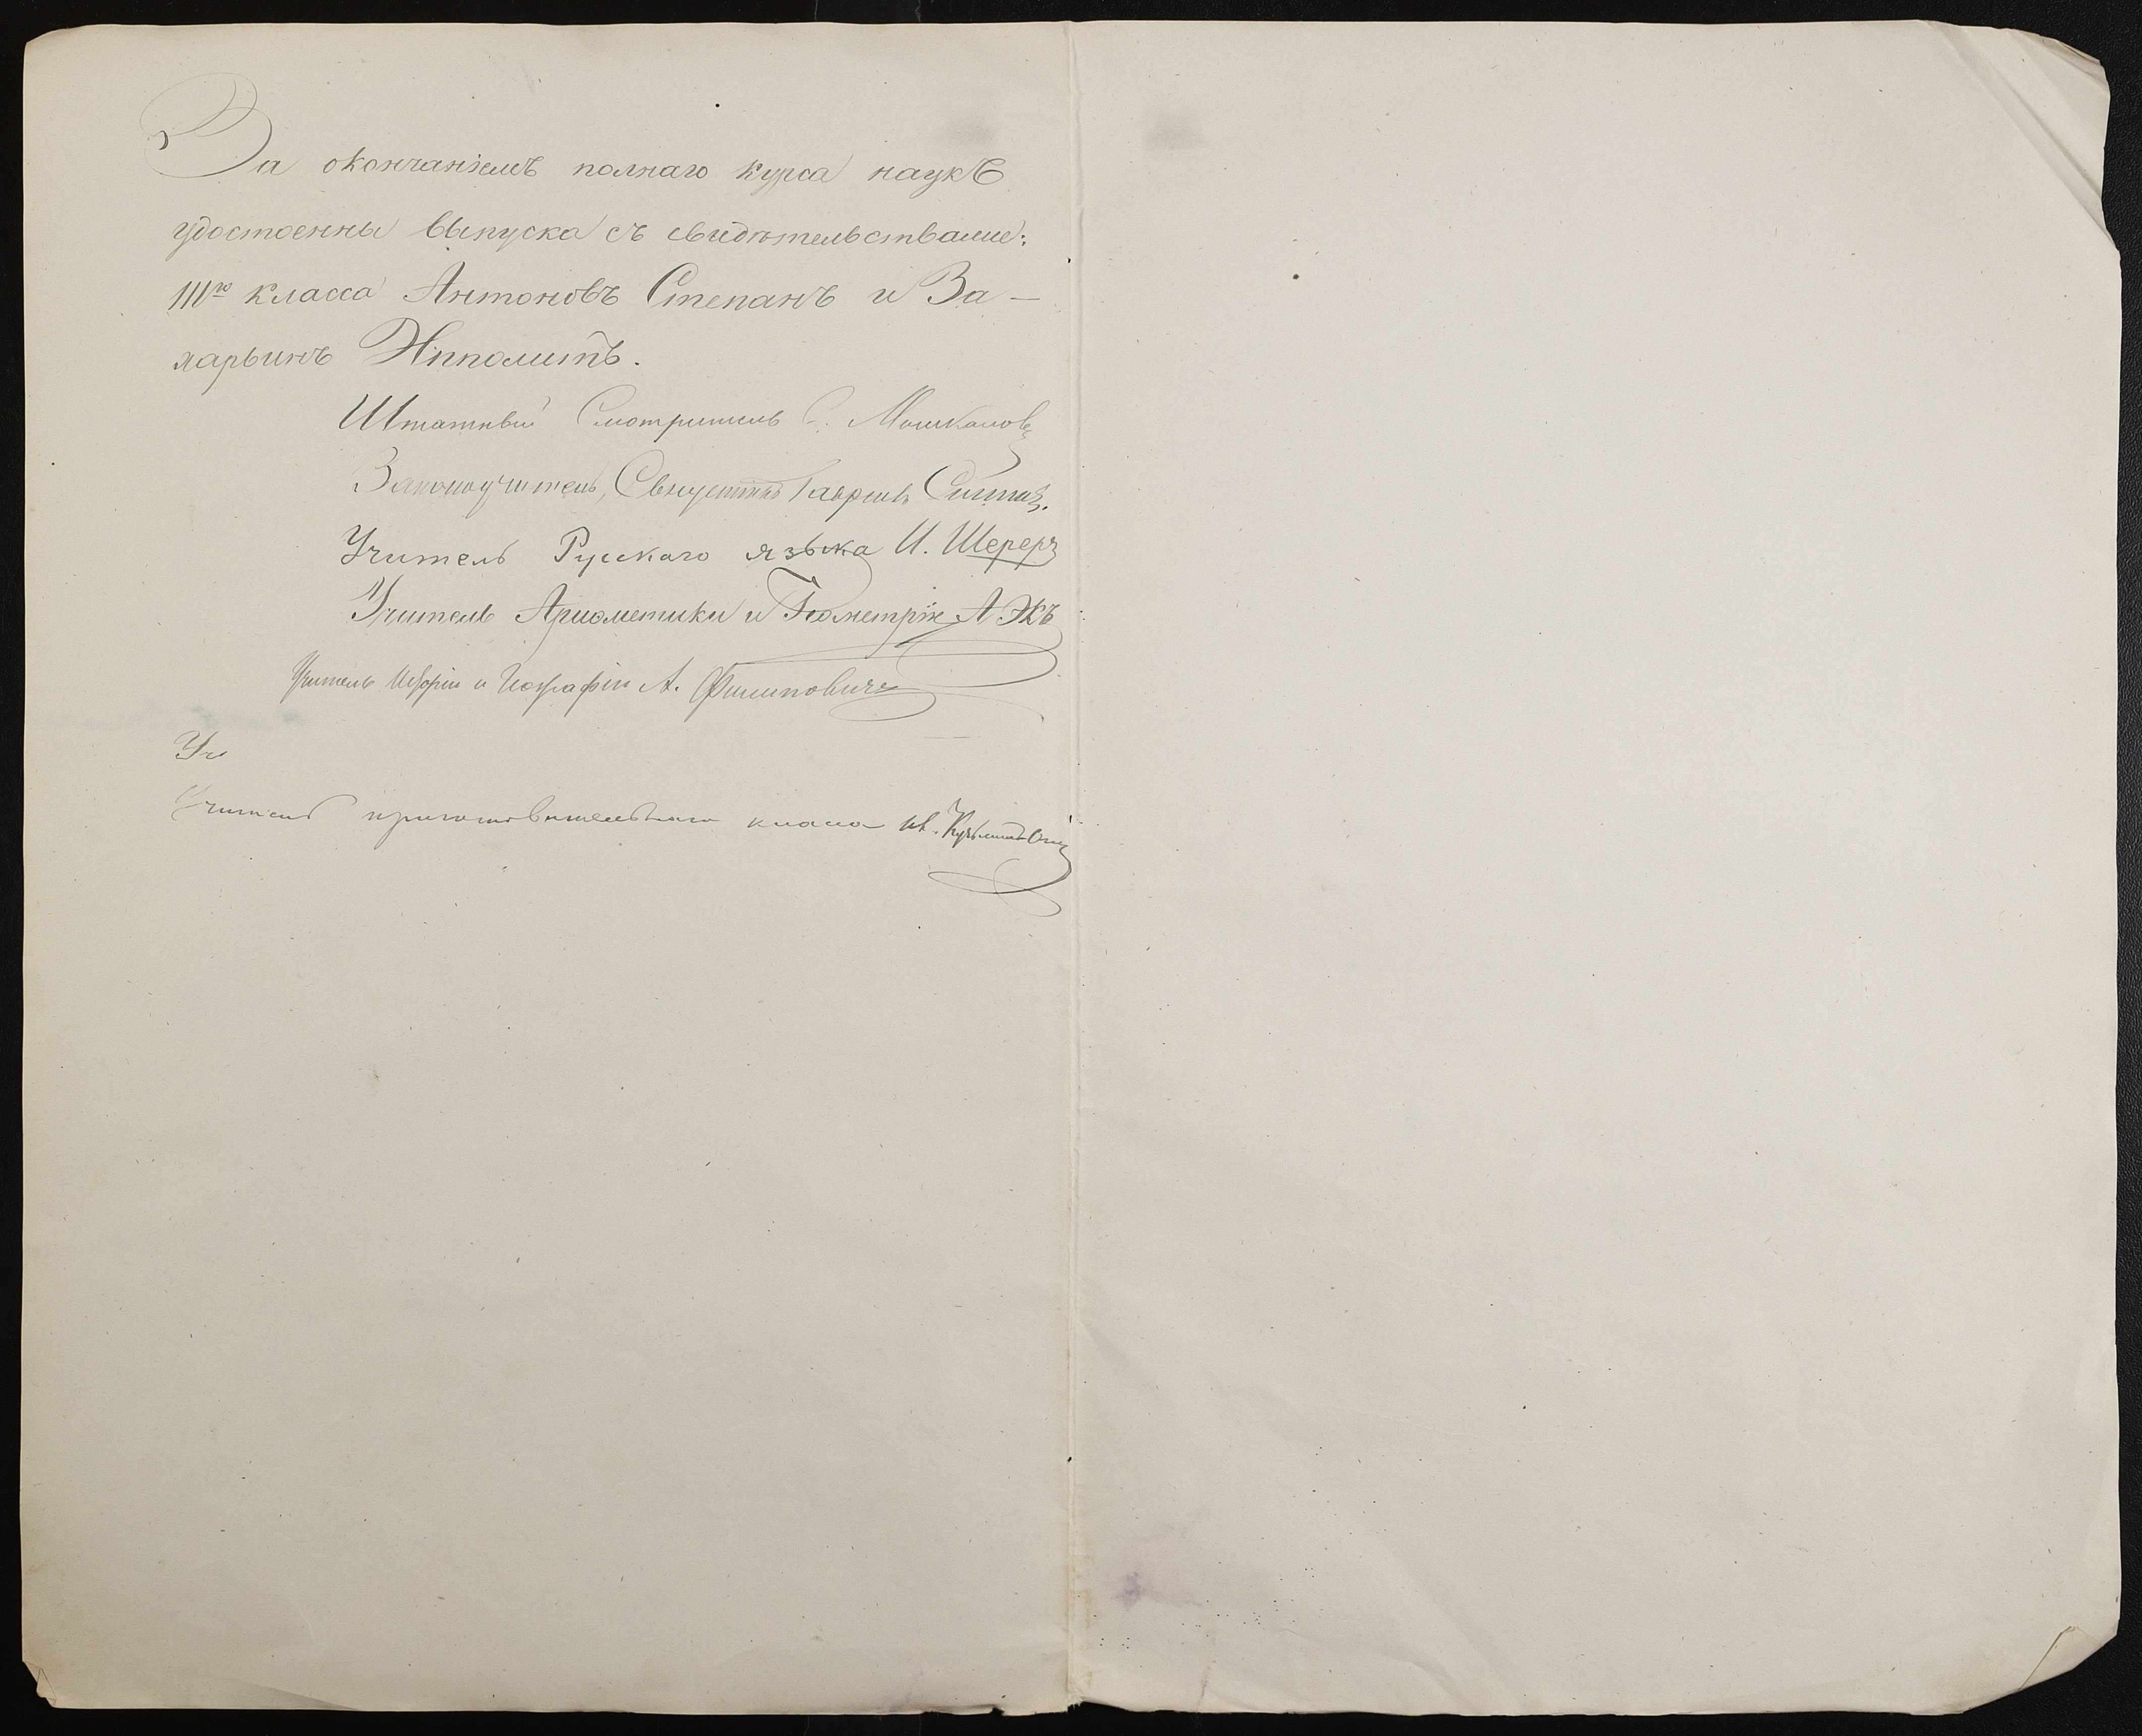 За окончаніемъ полнаго курса наукъ
удостоенны выпуска съ свидѣтельствами:
IIIго класса Антоновъ Степанъ и За-
ларьинъ Ипполитъ.
Штатный Смотритель С. Мошкаловъ
Законоучитель, Священникъ Гавріилъ
Учитель Русскаго языка И. Шереръ
Учитель Ариѳметики и Геометріи А Экъ
Учитель Исторіи и Географіи А. Филиповичъ
Уч
Учитель приготовительнаго класса Ив.